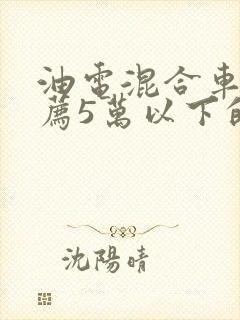 油電混合車
薦5萬以下的
沈陽晴